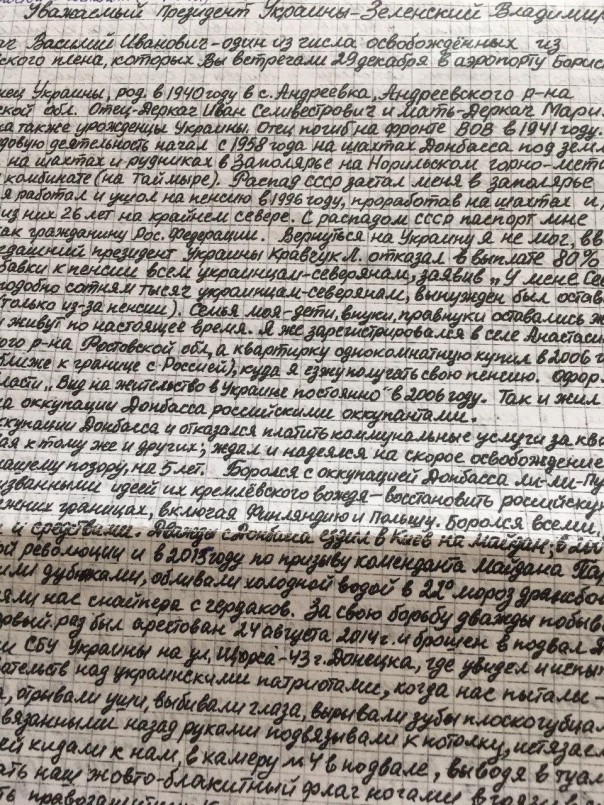 Уважаемый Президент Украины-Зеленский Владимир
Василий Иванович-один из числа освобождённых из
плена, которых Вы встречали 29 декабря в аэропорту Борис
Украины, род. в 1940 году в с. Андреевка, Андреевского р-на
обл. Отец-Деркач Иван Семвестрович и мать-Деркач Мари
также урожденцы Украины. Отец погиб на фронте ВОВ в 1941 году.
деятельность начал с 1958 года на шахтах Донбасса под земл
на шахтах и рудниках в Заполярье на Норильском горно-мета
комбинате (на Таймыре). Распад ссср застал меня в заполярье
я работал и ушол на пенсию в 1996 году, проработав на шахтах и
из них 26 лет на крайнем севере. С распадом ссср паспорт мне
как гражданину Рос. Федерации. Вернуться на Украину я не мог, вв
президент Украины Кравчук Л. отказал в выплате 80%
к пенсии всем украинцам-северянам, заявив „У меня Сев
подобно сотням тысяч украинцам-северянам, вынужден был остав
(только из-за пенсии). Семья моя-дети, внуки, правнуки оставались
живут по настоящее время. Я же зарегистрировался в селе Анастаси
р-на Ростовской обл, а квартирку однокомнатную купил в 2006 г
ближе к границе с-Россией), куда я езжу получать свою пенсию. Офор
„Вид на жительство в Украине постоянно" в 2006 году. Так и жил
оккупации Донбасса российскими оккупантами.
оккупации Донбасса и отказался платить коммунальные услуги за ква
к тому же и других; ждал и надеялся на скорое освобождение
нашему позору, на 5 лет. Боролся с оккупацией Донбасса
идеей их кремлёвского вождя-восстановить российскую
границах, включая Финляндию и Польшу. Боролся всеми
и средствами. Дважды с Донбасса ездил в Киев на майдан; в 200
революции и в 2013 году по призыву коменданта Майдана Пар
дубинками, обливали холодной водой в 22° мороз
нас снайпера с чердаков. За свою борьбу дважды побыва
раз был арестован 24 августа 2014 г. и брошен в подвал
СБУ Украины на ул, Щорса-43 г. Донецка, где увидел и испы
над украинскими патриотами, когда нас пытали-
отрывали уши, выбивали глаза, вырывали зубы плоскогубца
назад руками подвязывали к потолку, истязае
кидали к нам, в камеру №4 в подвале, выводя в туал
наш жовто-блакитный флаг ногами